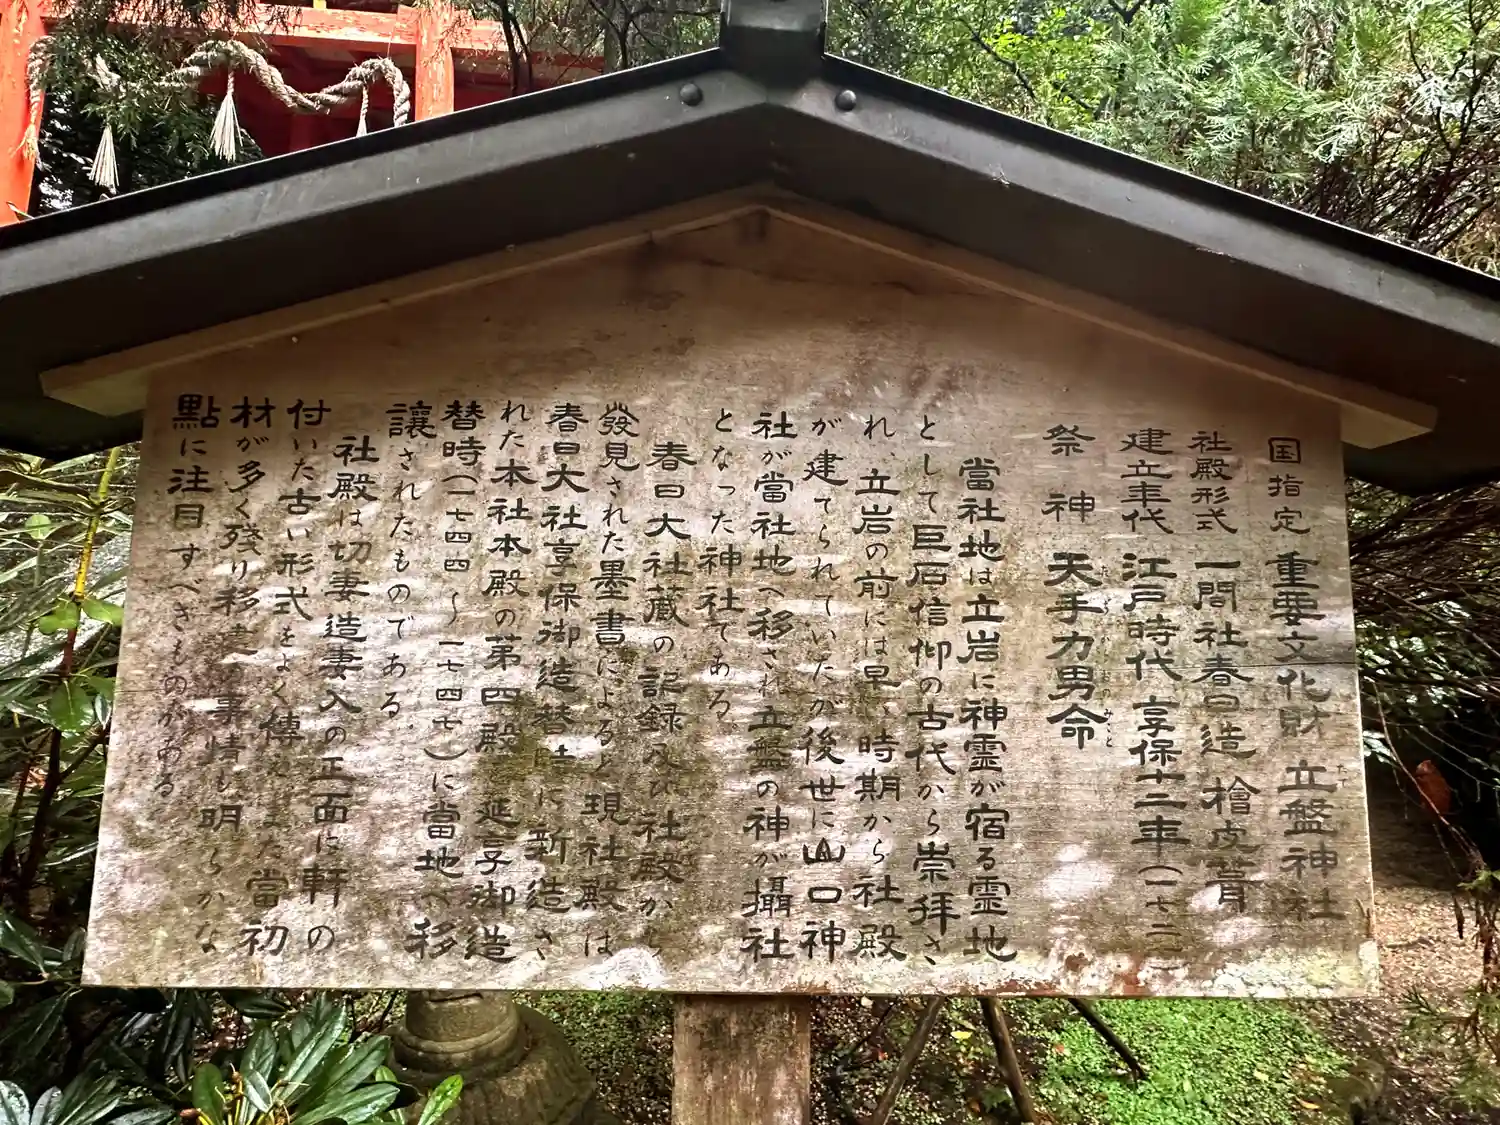 国指定 重要文化財 立盤神社
社殿形式 一間社春日造 檜皮葺
建立年代 江戸時代 享保十二年(一七二
祭神 天手力男命
當社地は立岩に神霊が宿る霊地
として巨石信仰の古代から崇拝さ
れ、立岩の前には早い時期から社殿
が建てられていたが後世に山口神
社が當社地へ移され立盤の神が攝社
となった神社である。
春日大社蔵の記録及び社殿から
發見された墨書によると現社殿は
春日大社享保御造替時に新造さ
れた本社本殿の第四殿 延享御造
替時(一七四四～一七四七)に當地へ移
讓されたものである。
社殿は切妻造妻入の正面に軒の
付いた古い形式をよく傳 當初
材が多く殘り移 事情も明らかな
點に注目すべきものがある